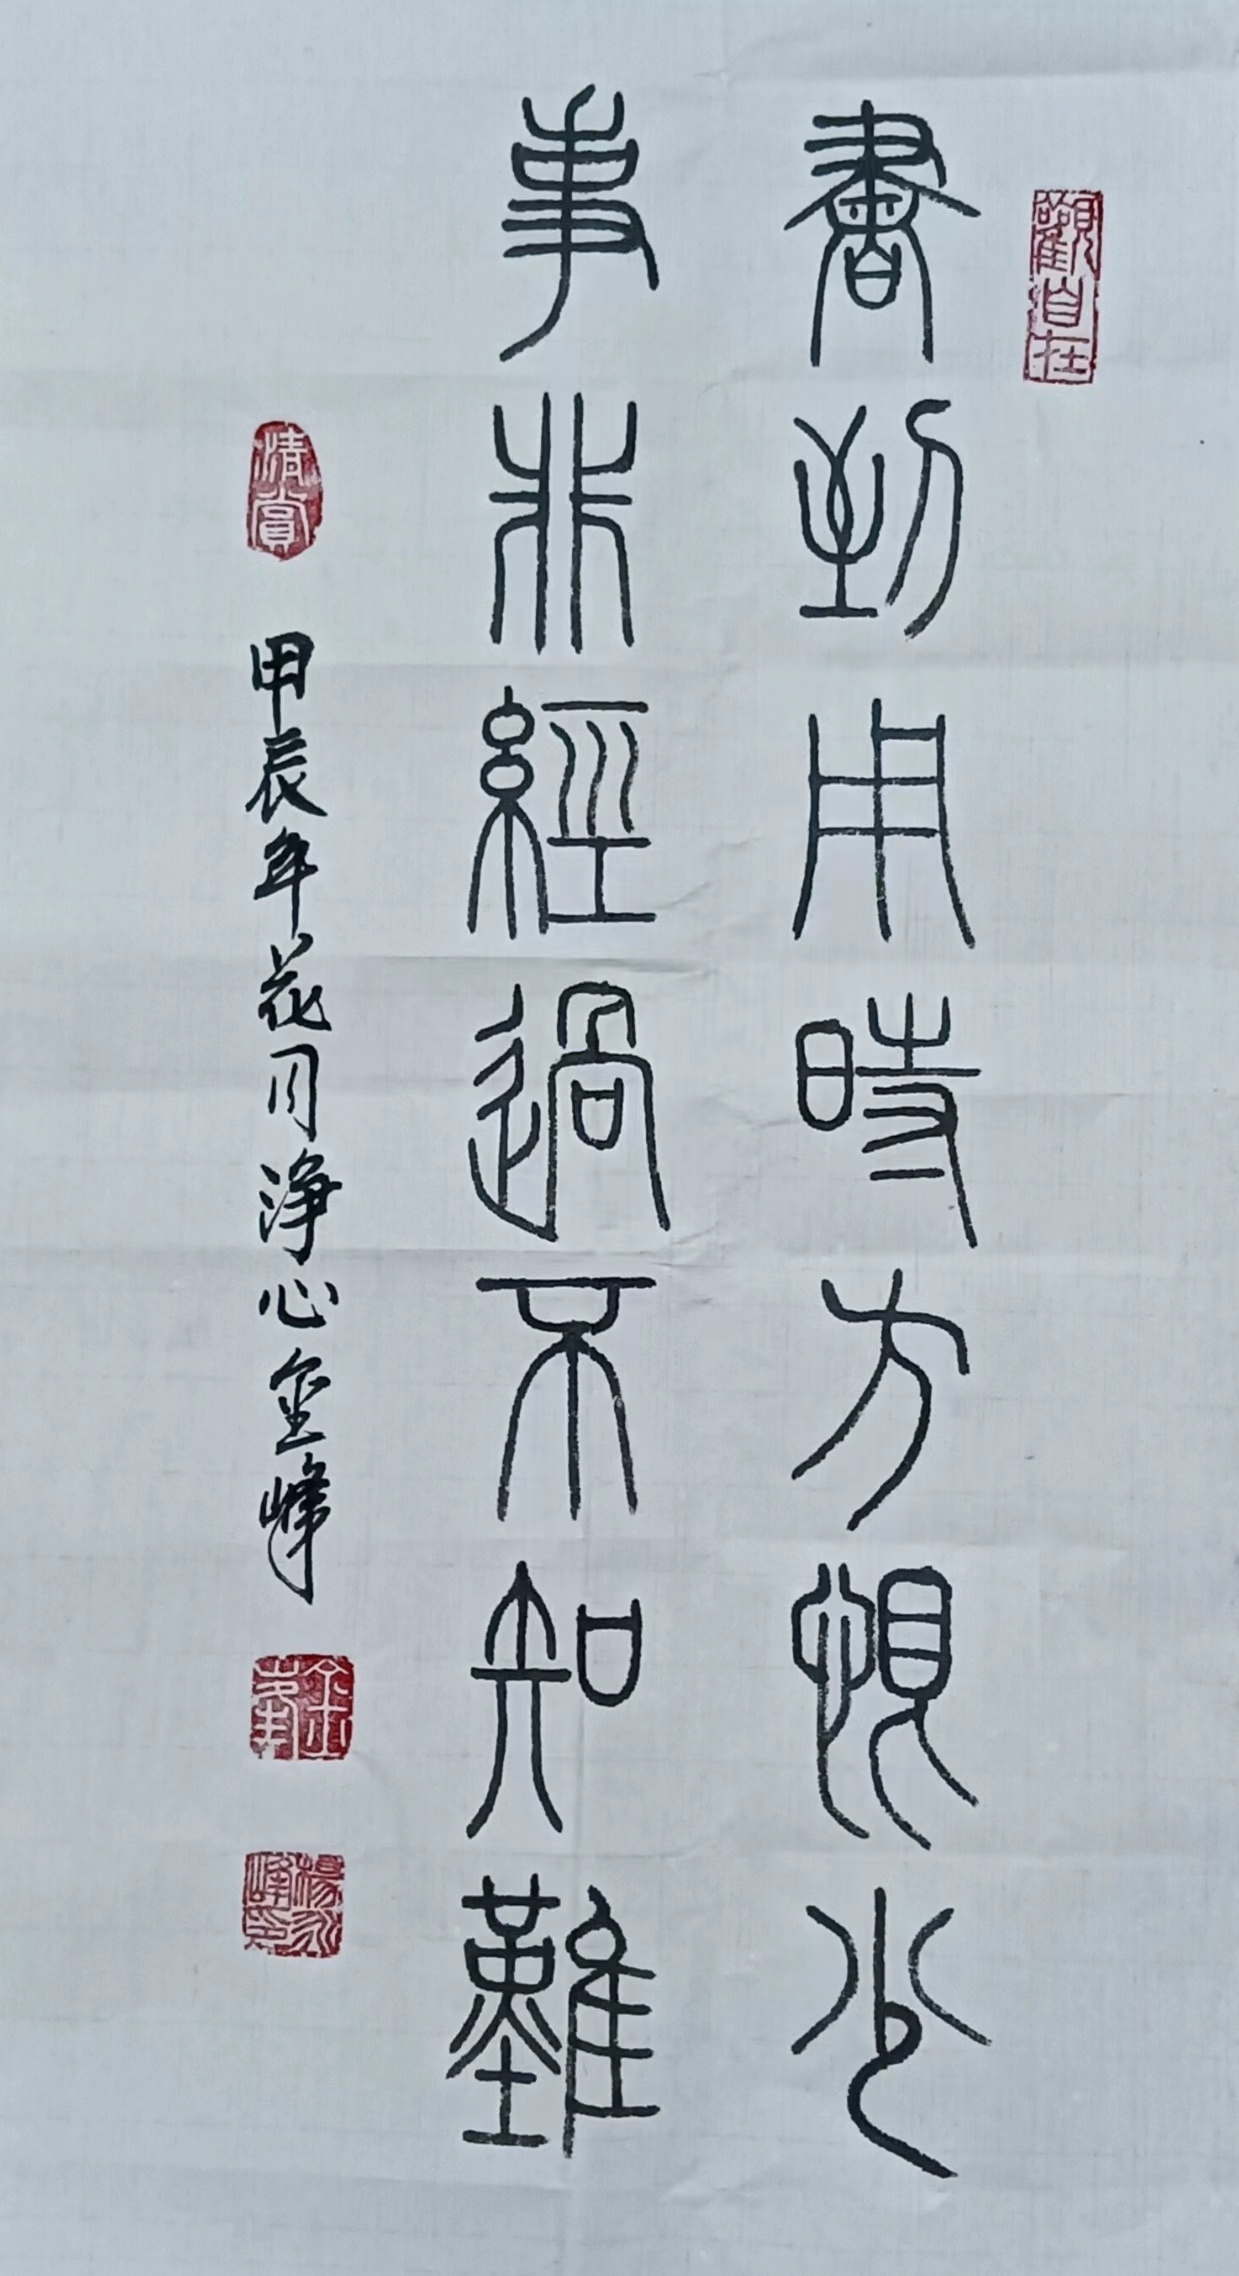 書到用時方恨少
事非經過不知難
甲辰年花月淨心金峰
觀自在
清賞
金峯